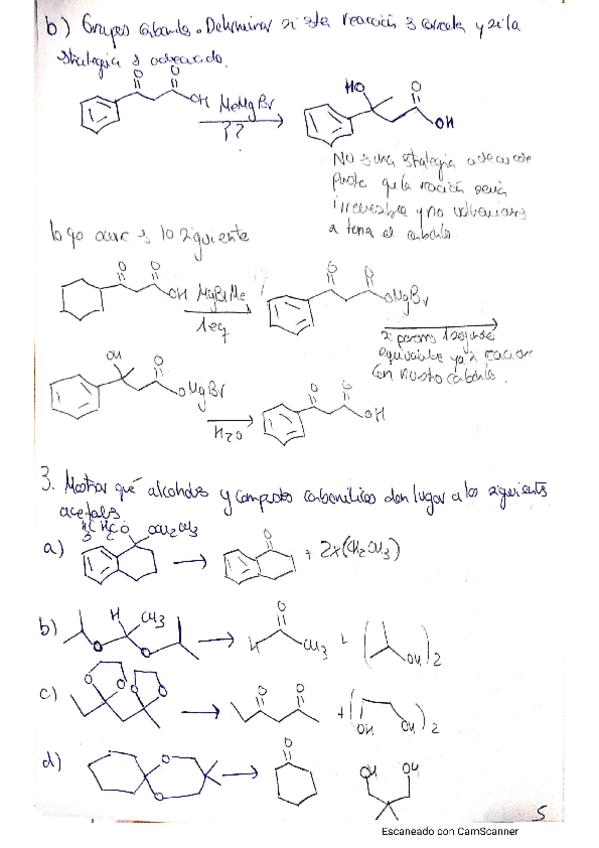 b) Grupos carbonilo. Determinar si esta reacción s correcta y si la
strategia s adecuada.
O O
OH MeMgBr
??
HO O
OH
No s una strategia adecuada
puesto que la reacción sería
irreversible y no volveríamos
a tener el carbonilo.
lo q ocurre s lo siguiente
O O
OH MgBrMe
1eq
O O
OMgBr
si ponemos 1 segundo
equivalente ya si reacciona
con nuestro carbonilo.
OH O
OMgBr
H2O
O O
OH
3. Mostrar qué alcoholes y compuestos carbonílicos dan lugar a los siguientes
acetales
a) OCH2CH3 O + 2x(CH2CH3)
b) H CH3 O O O H CH3 + (OH)2
c) O O O O O O + (OH OH)2
d) O O O OH OH
5
Escaneado con CamScanner